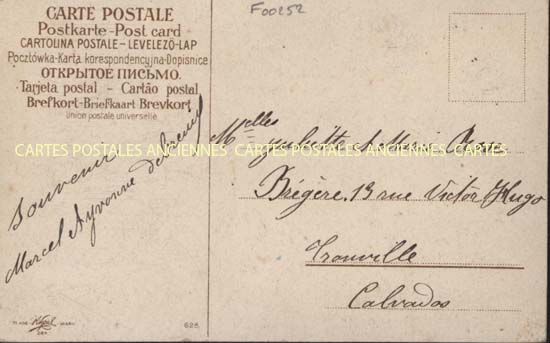 F00252
CARTE POSTALE
Postkarte-Post card
CARTOLINA POSTALE-LEVELEZŐ-LAP
Pocztówka-Karta korespondencyjna-Dopisnice
ОТКРЫТОЕ ПИСЬМО.
Tarjeta postal - Cartão postal
Brefkort-Briefkaart Brevkort
Union postale universelle
CARTES POSTALES ANCIENNES CARTES POSTALES ANCIENNES CARTES POSTALES ANCIENNES
Souvenir
Marcel & Yvonne
Melles
& Marie
Brégère. 13 rue Victor Hugo
Trouville
Calvados
625